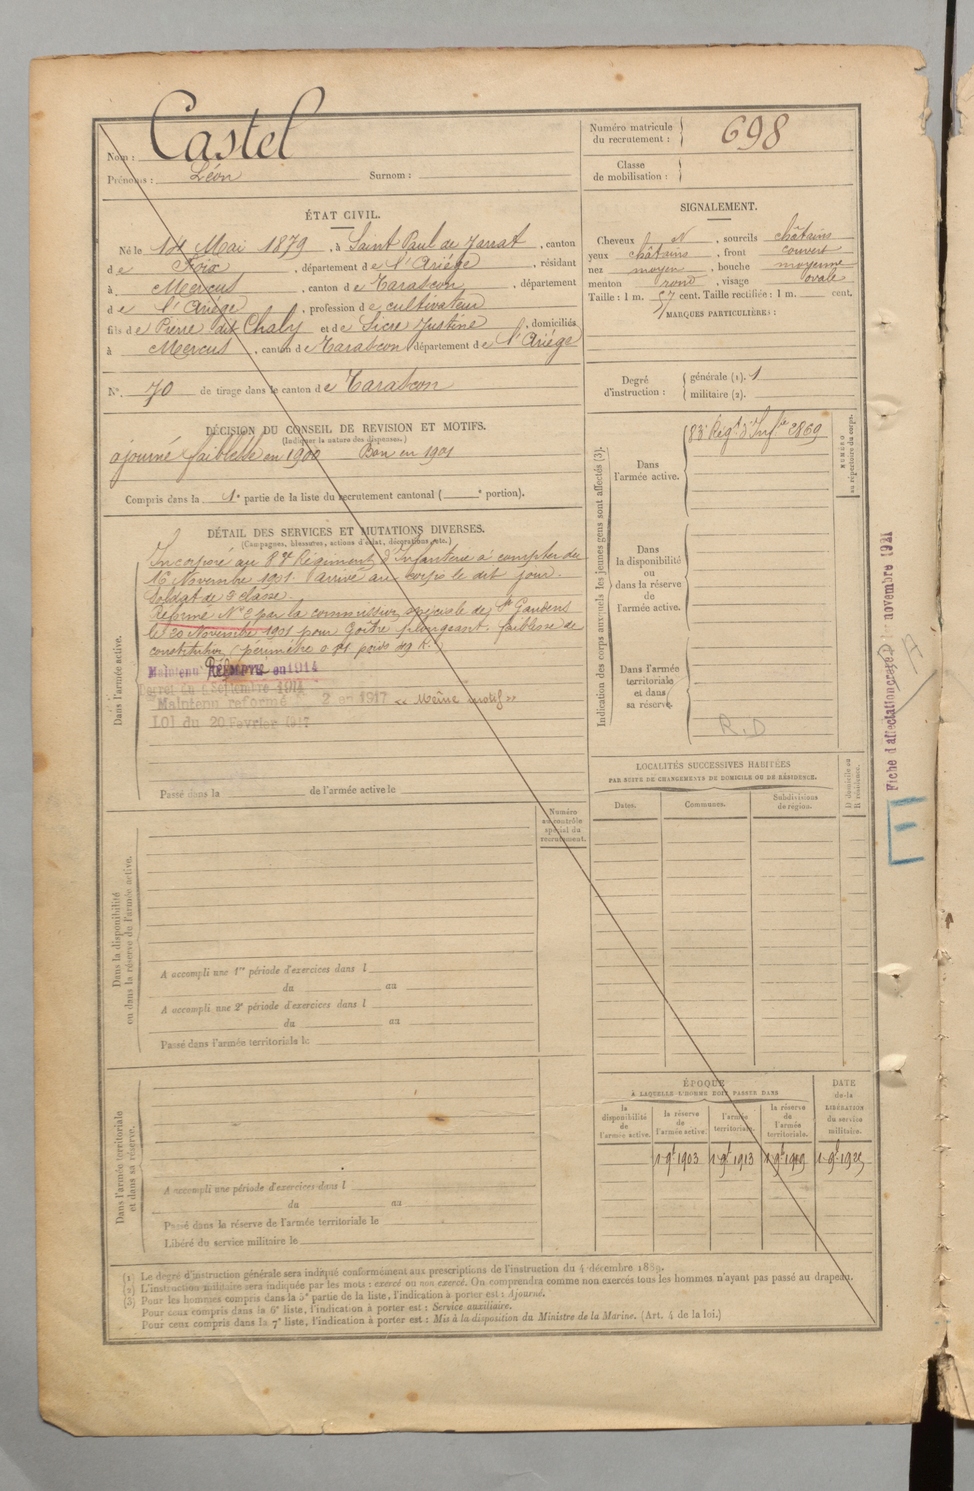 Nom : Castel
Prénoms : Léon Surnom :
Numéro matricule
du recrutement : 698
Classe
de mobilisation :
ÉTAT CIVIL.
Né le 14 Mai 1879, à Saint Paul de Jarrat, canton
de Foix, département de l'Ariège, résidant
à Mercus, canton de Tarascon, département
de l'Ariège, profession de cultivateur
fils de Pierre dit Chaly et de Sicre Justine, domiciliés
à Mercus, canton de Tarascon, département de l'Ariège
N°. 70 de tirage dans le canton de Tarascon
SIGNALEMENT.
Cheveux et, sourcils châtains
yeux châtains, front couvert
nez moyen, bouche moyenne
menton rond, visage ovale
Taille : 1 m. 57 cent. Taille rectifiée : 1 m. cent.
MARQUES PARTICULIÈRES :
Degré
d'instruction :
générale (1). 1
militaire (2).
DÉCISION DU CONSEIL DE REVISION ET MOTIFS.
(Indiquer la nature des dispenses.)
ajourné faiblesse en 1900 Bon en 1901
Compris dans la 1e partie de la liste du recrutement cantonal ( e portion).
DÉTAIL DES SERVICES ET MUTATIONS DIVERSES.
(Campagnes, blessures, actions d'éclat, décorations, etc.)
Dans l'armée active.
Incorporé au Régiment d'Infanterie à compter du
16 Novembre 1901. Arrivé au corps le dit jour.
Soldat de 2e classe.
Réformé N° 2 par la commission spéciale de St Gaudens
le 20 Novembre 1901 pour Goître plongeant. faiblesse de
constitution (périmètre
Maintenu Réformé en 1914
Décret du 9 Septembre 1914
Maintenu reformé 2 en 1917 « Même motif »
LOI du 20 Février 1917
Passé dans la de l'armée active le
Indication des corps auxquels les jeunes gens sont affectés (3).
Dans
l'armée active.
83e Régt d'Infie 2869
NUMÉRO
au répertoire du corps.
Dans
la disponibilité
ou
dans la réserve
de
l'armée active.
Dans l'armée
territoriale
et dans
sa réserve.
R.D
Fiche d'affectation novembre 1921
E
LOCALITÉS SUCCESSIVES HABITÉES
PAR SUITE DE CHANGEMENTS DE DOMICILE OU DE RÉSIDENCE.
Dates.
Communes.
Subdivisions
de région.
D domicile ou
R résidence.
Numéro
au contrôle
spécial du
recrutement.
Dans la disponibilité
ou dans la réserve de l'armée active.
A accompli une 1re période d'exercices dans l
du au
A accompli une 2e période d'exercices dans l
du au
Passé dans l'armée territoriale le
Dans l'armée territoriale
et dans sa réserve.
A accompli une période d'exercices dans l
du au
Passé dans la réserve de l'armée territoriale le
Libéré du service militaire le
ÉPOQUE
À LAQUELLE L'HOMME DOIT PASSER DANS
la
disponibilité
de
l'armée active.
la réserve
de
l'armée active.
l'armée
territoriale.
la réserve
de
l'armée
territoriale.
DATE
de la
LIBÉRATION
du service
militaire.
1 9bre 1903 1 9bre 1913 1 9bre 1919 1 9bre 1925
(1) Le degré d'instruction générale sera indiqué conformément aux prescriptions de l'instruction du 4 décembre 1889.
(2) L'instruction militaire sera indiquée par les mots : exercé ou non exercé. On comprendra comme non exercés tous les hommes n'ayant pas passé au drapeau.
(3) Pour les hommes compris dans la 5e partie de la liste, l'indication à porter est : Ajourné.
Pour ceux compris dans la 6e liste, l'indication à porter est : Service auxiliaire.
Pour ceux compris dans la 7e liste, l'indication à porter est : Mis à la disposition du Ministre de la Marine. (Art. 4 de la loi.)